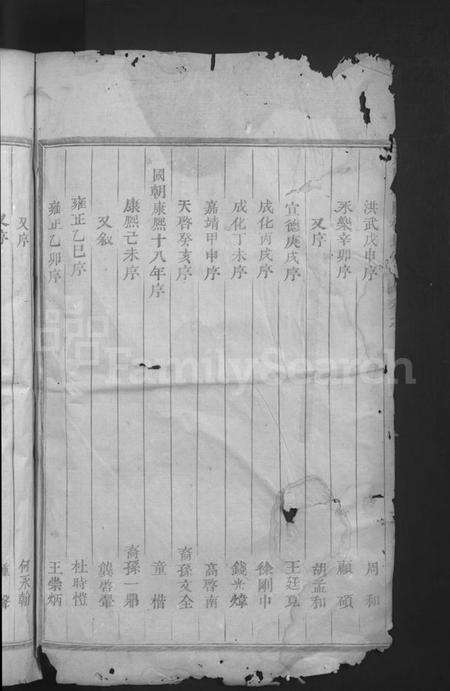 洪武戊申序 周和
永樂辛卯序 顧碩
又序 胡孟和
宣德庚戌序 王廷
成化丙戌序 徐剛中
成化丁未序 錢
嘉靖甲申序 高啓南
天啓癸亥序 裔孫文全
國朝康熙十八年序 童楷
康熙己未序 裔孫一鼎
又敘 熊啓
雍正乙巳序 杜時愷
雍正乙卯序 王崇炳
又序 何永翰
又序
FamilySearch